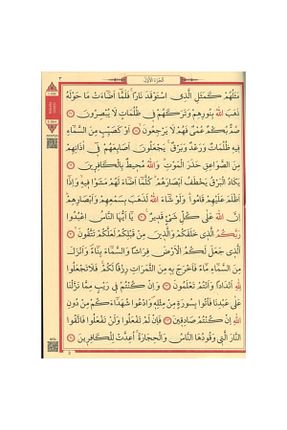 الجزء الاول
مَثَلُهُمْ كَمَثَلِ الَّذِي اسْتَوْقَدَ نَارًا فَلَمَّا أَضَاءَتْ مَا حَوْلَهُ
ذَهَبَ اللهُ بِنُورِهِمْ وَتَرَكَهُمْ فِي ظُلُمَاتٍ لَا يُبْصِرُونَ
صُمٌّ بُكْمٌ عُمْيٌ فَهُمْ لَا يَرْجِعُونَ أَوْ كَصَيِّبٍ مِنَ السَّمَاءِ
فِيهِ ظُلُمَاتٌ وَرَعْدٌ وَبَرْقٌ يَجْعَلُونَ أَصَابِعَهُمْ فِي آذَانِهِمْ
مِنَ الصَّوَاعِقِ حَذَرَ الْمَوْتِ وَاللهُ مُحِيطٌ بِالْكَافِرِينَ
يَكَادُ الْبَرْقُ يَخْطَفُ أَبْصَارَهُمْ كُلَّمَا أَضَاءَ لَهُمْ مَشَوْا فِيهِ وَإِذَا
أَظْلَمَ عَلَيْهِمْ قَامُوا وَلَوْ شَاءَ اللهُ لَذَهَبَ بِسَمْعِهِمْ وَأَبْصَارِهِمْ
إِنَّ اللهَ عَلَى كُلِّ شَيْءٍ قَدِيرٌ يَا أَيُّهَا النَّاسُ اعْبُدُوا
رَبَّكُمُ الَّذِي خَلَقَكُمْ وَالَّذِينَ مِنْ قَبْلِكُمْ لَعَلَّكُمْ تَتَّقُونَ
الَّذِي جَعَلَ لَكُمُ الْأَرْضَ فِرَاشًا وَالسَّمَاءَ بِنَاءً وَأَنْزَلَ
مِنَ السَّمَاءِ مَاءً فَأَخْرَجَ بِهِ مِنَ الثَّمَرَاتِ رِزْقًا لَكُمْ فَلَا تَجْعَلُوا
لِلهِ أَنْدَادًا وَأَنْتُمْ تَعْلَمُونَ وَإِنْ كُنْتُمْ فِي رَيْبٍ مِمَّا نَزَّلْنَا
عَلَى عَبْدِنَا فَأْتُوا بِسُورَةٍ مِنْ مِثْلِهِ وَادْعُوا شُهَدَاءَكُمْ مِنْ دُونِ
اللهِ إِنْ كُنْتُمْ صَادِقِينَ فَإِنْ لَمْ تَفْعَلُوا وَلَنْ تَفْعَلُوا فَاتَّقُوا
النَّارَ الَّتِي وَقُودُهَا النَّاسُ وَالْحِجَارَةُ أُعِدَّتْ لِلْكَافِرِينَ